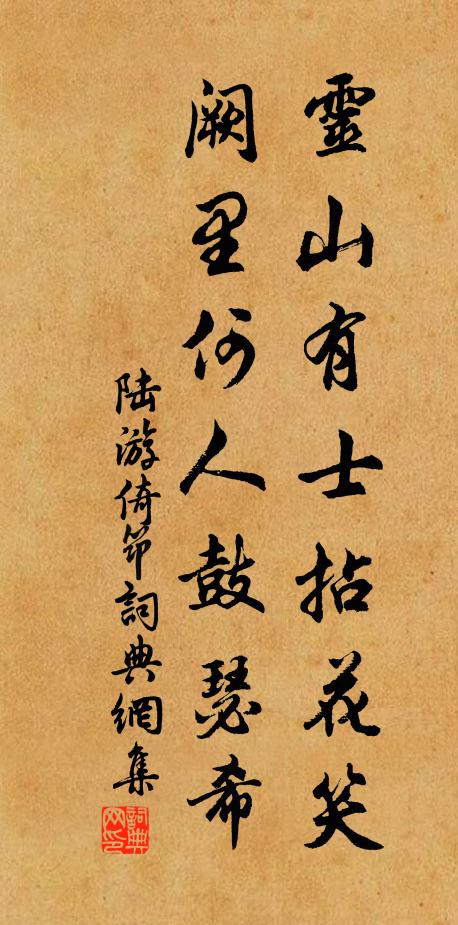 靈山有士拈花笑
闕里何人鼓瑟希
陆游倚筇詞典網集
詞典网印